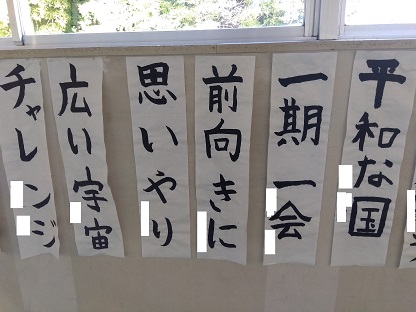 平和な国
一期一会
前向きに
思いやり
広い宇宙
チャレンジ